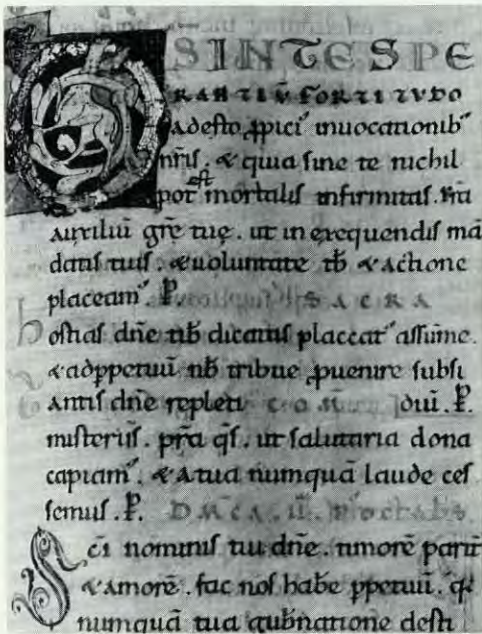 DS IN TE SPE
RANTIŪ FORTITVDO
adesto ꝓpici' inuocationib'
nr̄is. & quia sine te nichil
pot est mortalis infirmitas. p̄ta
auxiliū grē tuę. ut in exequendis mā
datis tuis. & uoluntate tb̄ & actione
placeam' P. SACRA
Hostias dn̄e tib̄ dicatas placat' assume.
& adppetuū nb̄ tribue ꝓuenire subsi
Tantis dn̄e repleti COM duū. P.
misteriis. pr̄a qs̄. ut salutaria dona
capiam'. & a tua numquā laude ces
semus. P. DMCA. II. P OCTABS
Sc̄i nominis tui dn̄e. timorē parit'
& amorē. fac nos habe ppetuū. q'
numquā tua gub̄natione desti